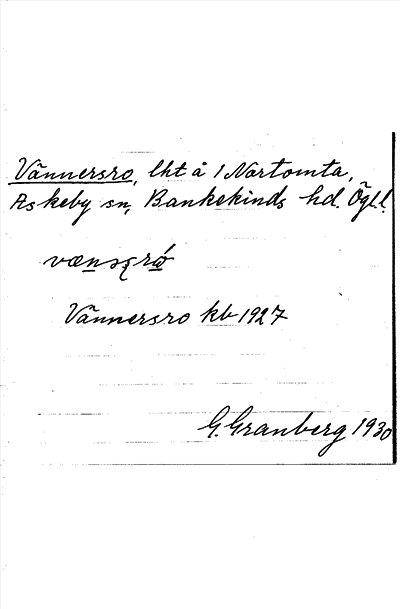 Vännersro, lht å 1 Nortomta,
Askeby sn, Bankekinds hd. Ögl.
Vännersro kb 1927
G. Granberg 1930